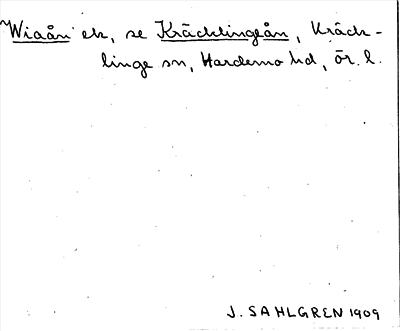 "Wiaån" etc, se Kräcklingeån, Kräck-
linge sn, Hardemo hd, ör. l.
J. SAHLGREN 1909